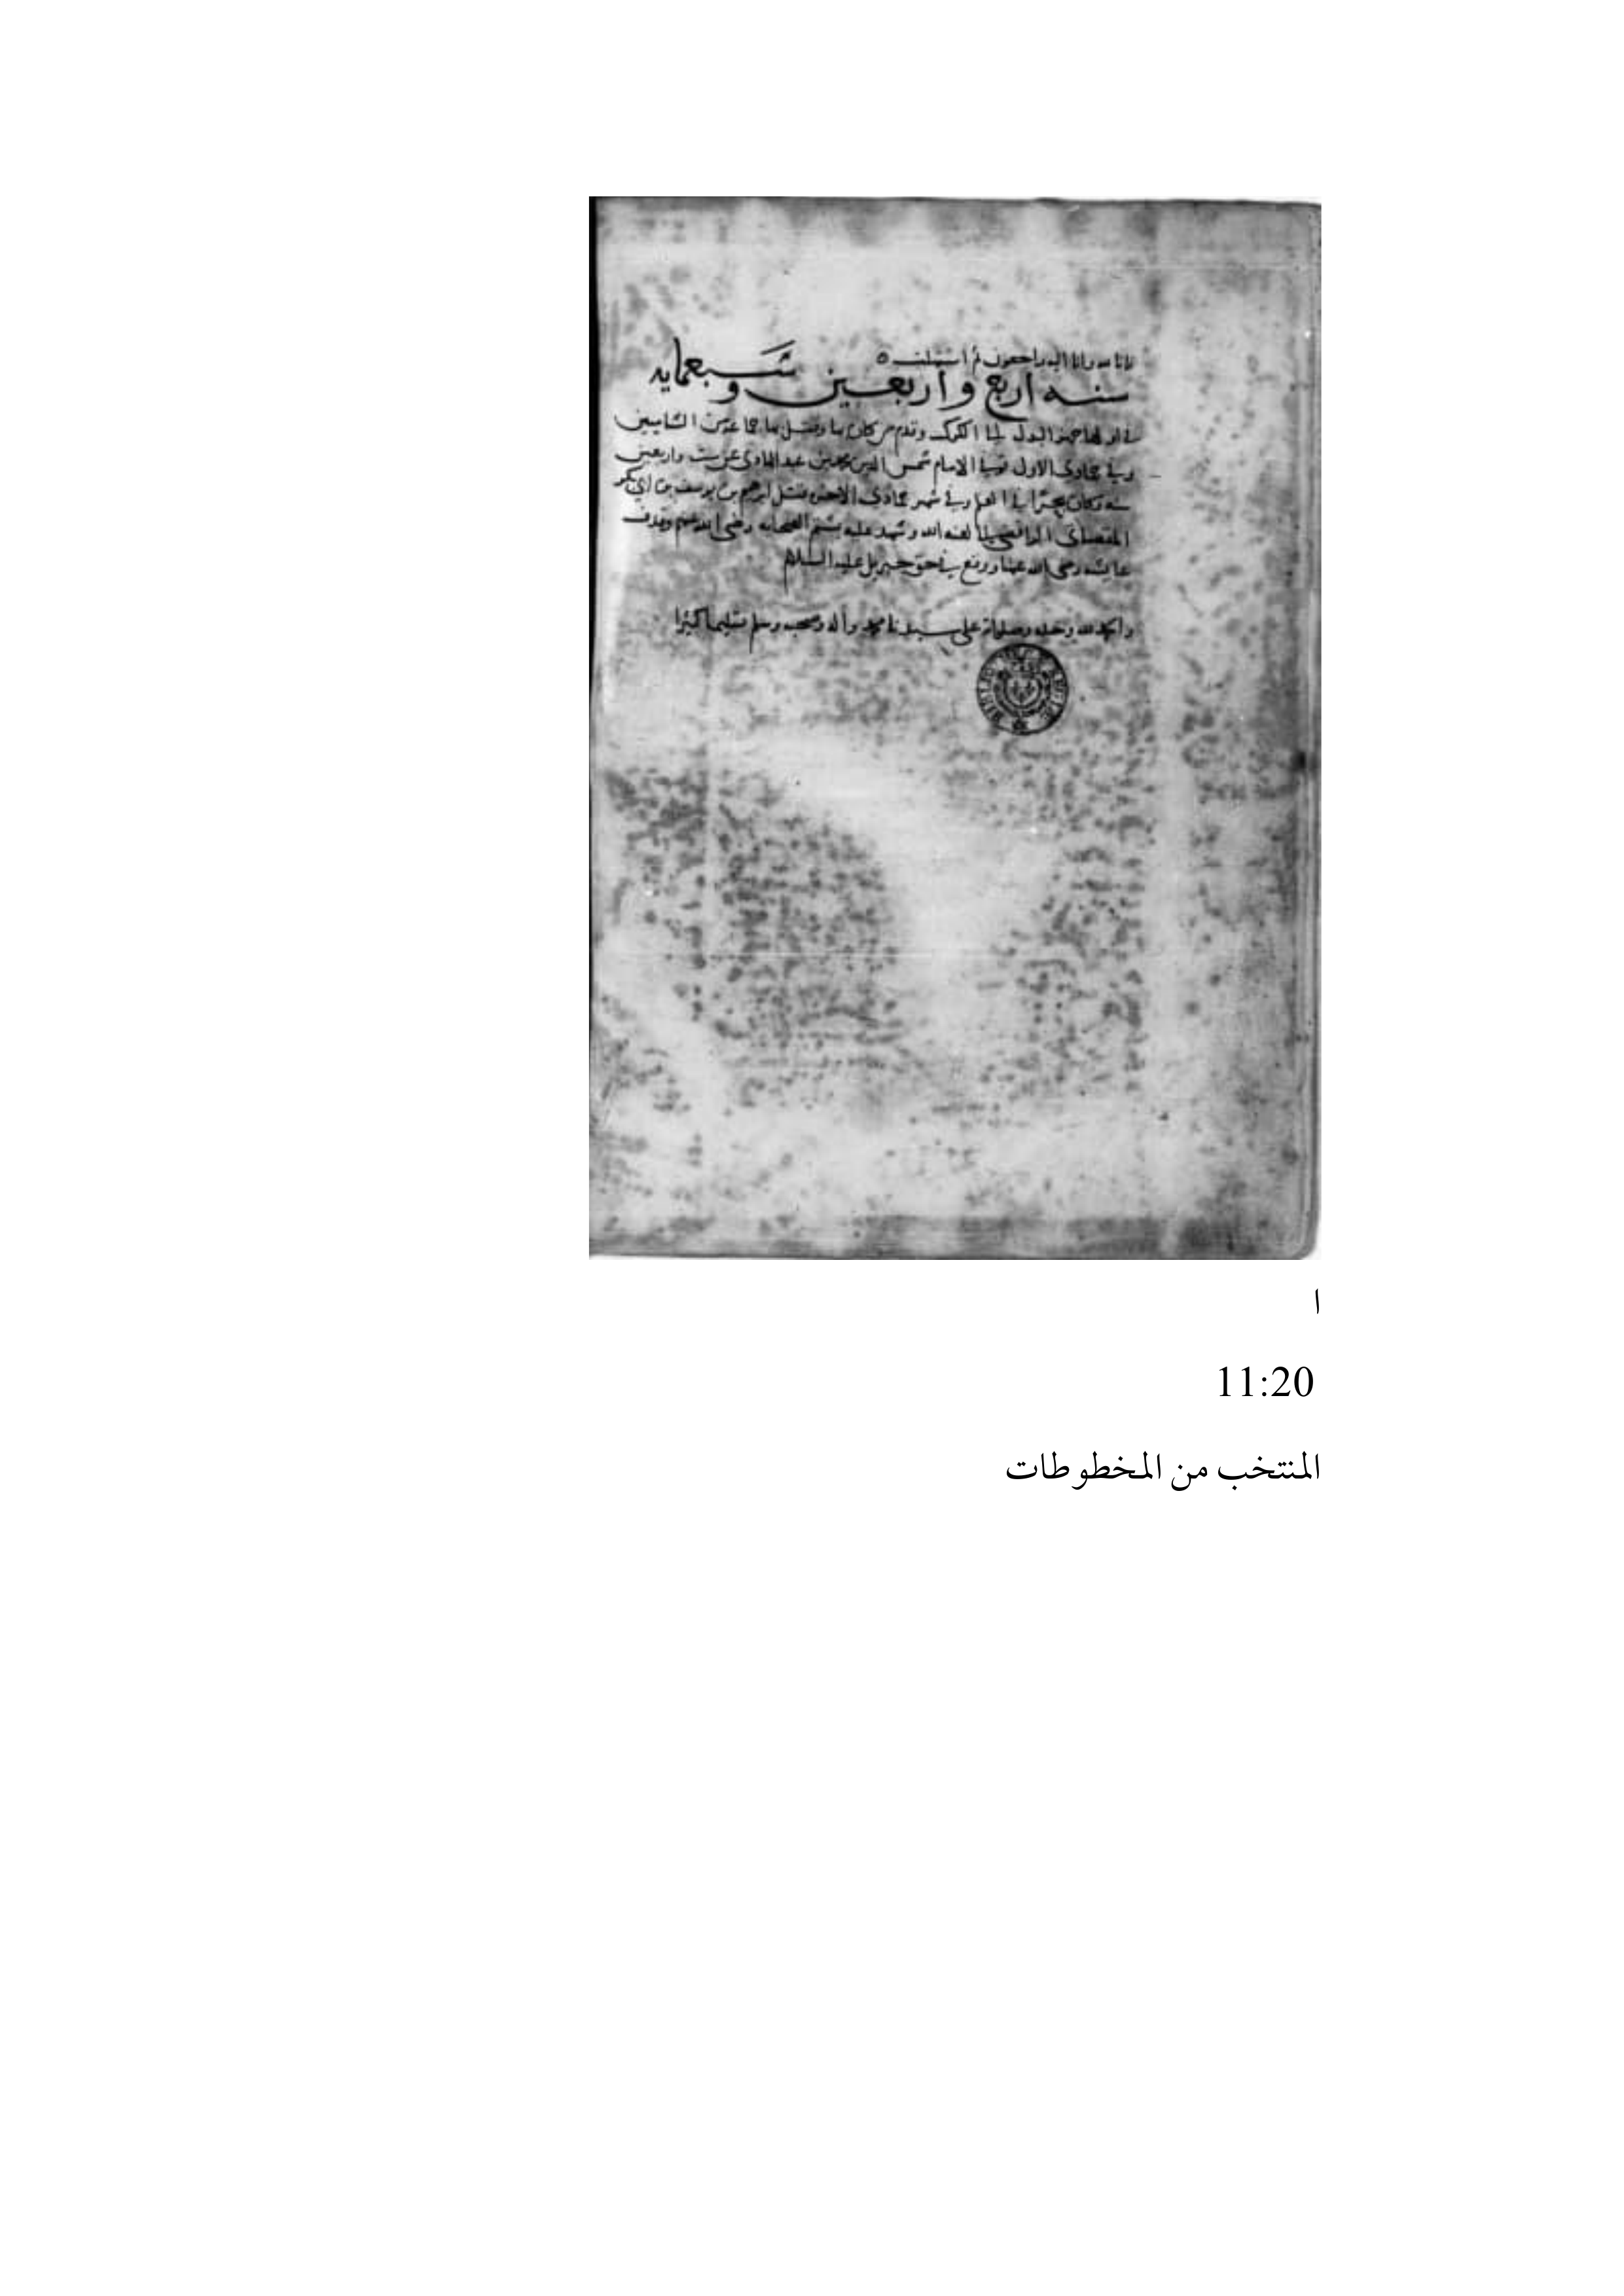 وانا اليه راجعون ثم استهلت ه
سنه اربع واربعين وسبعمايه
في اولها الكرك وقدم من كان بها وقتل بها جماعه من الشاميين
وفي جمادى الاول توفي الامام شمس الدين محمد بن عبد الهادى عن ست واربعين
سنه وكان في العلم وفي شهر جمادى الاخر قتل ابرهيم بن يوسف بن ابي بكر
الرافضي لعنه الله وشهد عليه بشتم الصحابه رضي الله عنهم وقذف
عائشه رضى الله عنها ووقع في حق جبريل عليه السلام
والحمد لله وحده وصلواته على سيدنا محمد وآله وصحبه وسلم تسليما كثيرا
ا
11:20
المنتخب من المخطوطات